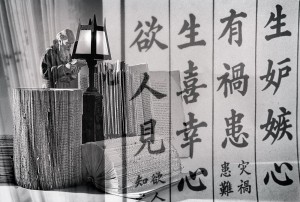 生妒嫉心
有禍患
灾禍
患難
生喜幸心
欲人見
欲人
知